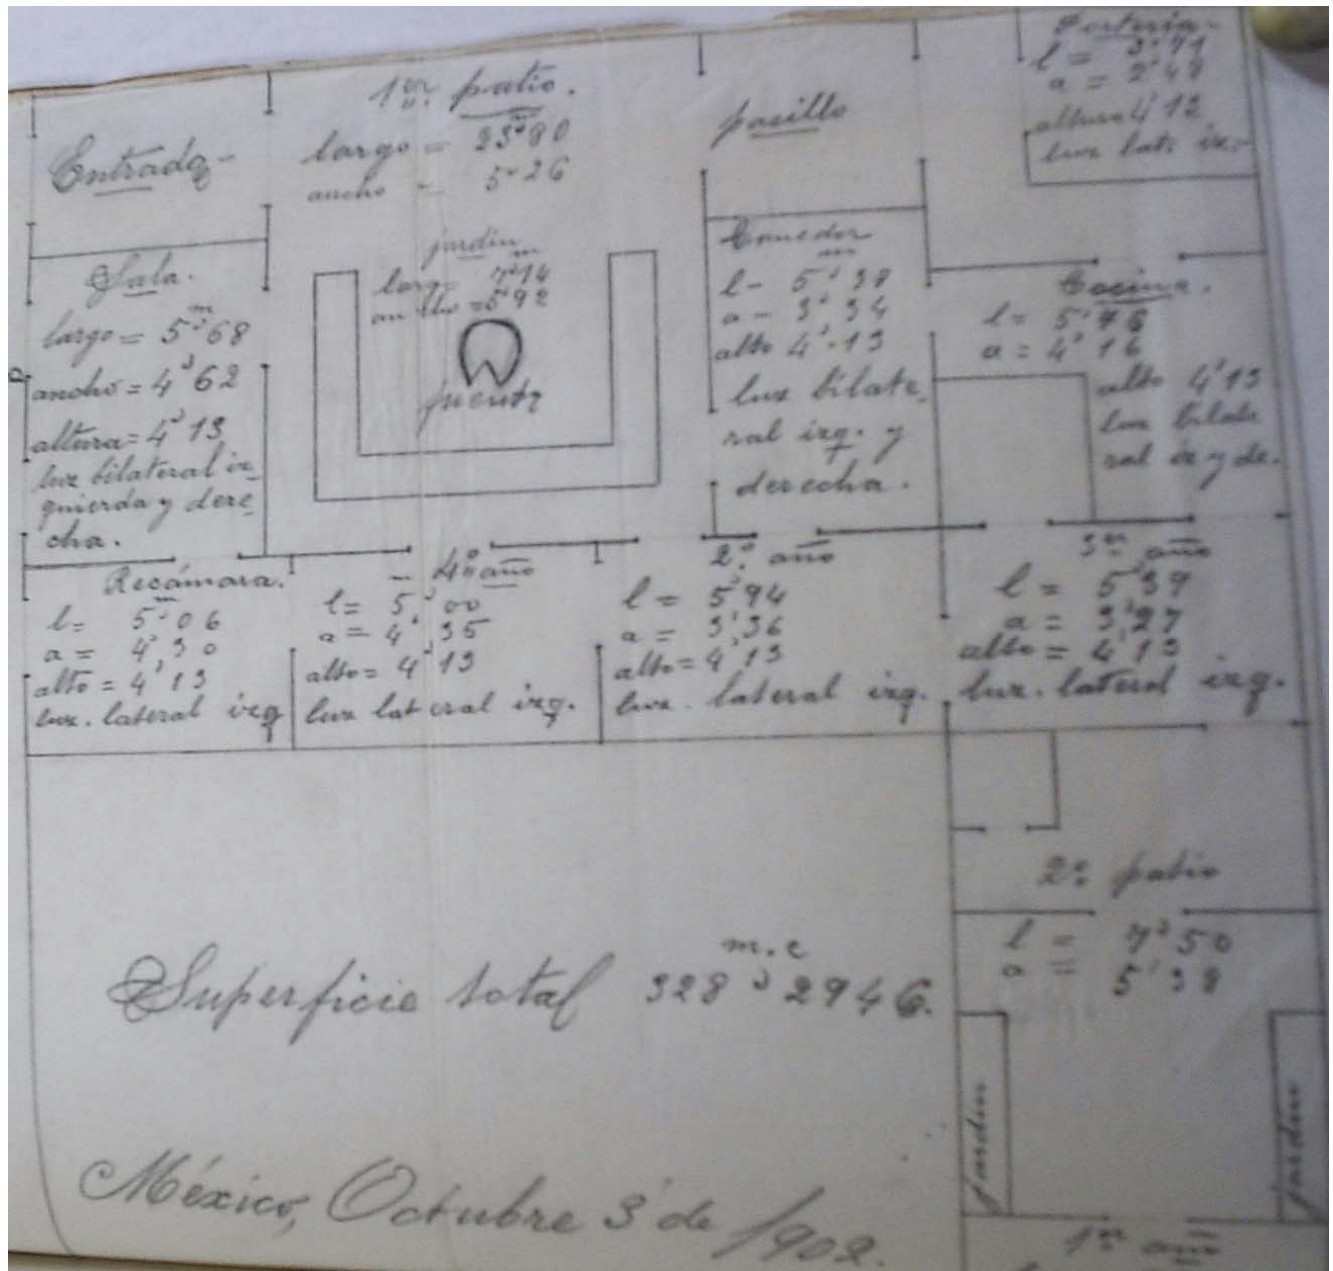 Entrada-
1er. patio.
m
largo = 23'80
ancho = 5'26
pasillo
Portería-
l = 3'71
a = 2'48
altura 4'12
luz late iz.-
Sala.
m
largo = 5'68
ancho = 4'62
altura = 4'13
luz bilateral iz-
quierda y dere-
cha.
jardín
m
largo = 7'14
ancho = 5'92
fuente
Comedor
m
l- 5'38
a- 3'34
alto 4'13
luz bilate-
ral izq. y
derecha.
Cocina.
l = 5'76
a = 4'16
alto 4'13
luz bilate
ral iz y de.
Recámara.
m
l = 5'06
a = 4'30
alto = 4'13
luz. lateral izq
4o. año
l = 5'00
a = 4'35
alto = 4'13
luz lateral izq.
2o. año
l = 5'94
a = 3'36
alto = 4'13
luz. lateral izq.
3er año
l = 5'39
a = 3'27
alto = 4'13
luz. lateral izq.
2o. patio
l = 7'50
a = 5'38
jardín
jardín
1er año
m.c
Superficie total 328'2946.
México, Octubre 3 de 1902.